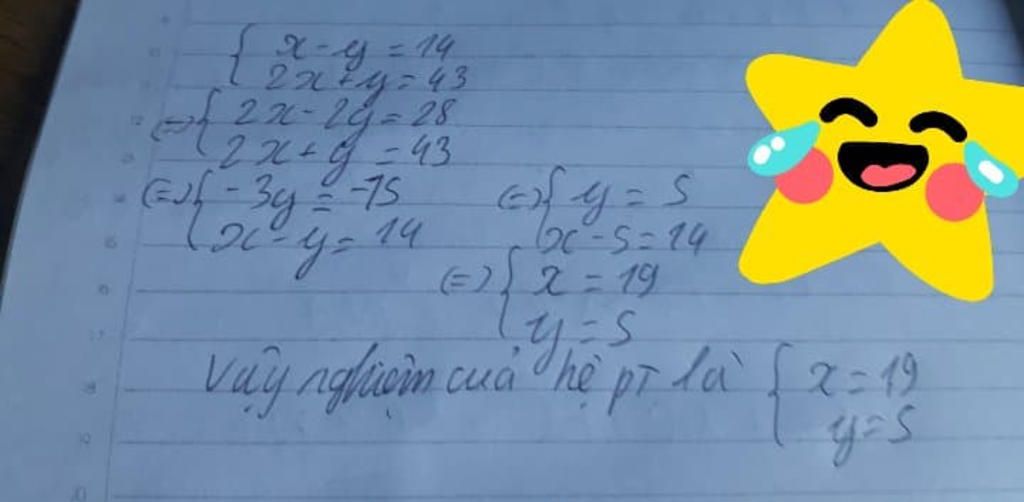 { x - y = 14
2x + y = 43
(=) { 2x - 2y = 28
2x + y = 43
(=) { -3y = -15 (=) { y = 5
x - y = 14 x - 5 = 14
(=) { x = 19
y = 5
Vậy nghiệm của hệ pT là { x = 19
y = 5